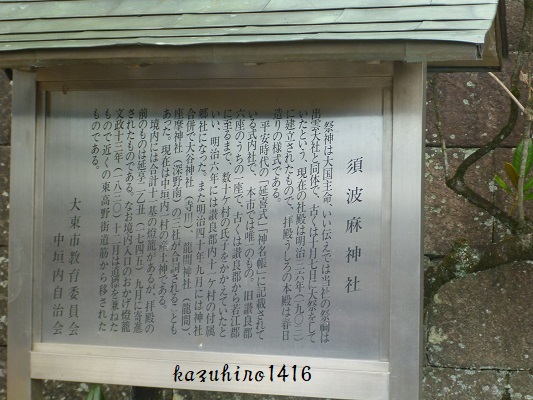 須波麻神社
祭神は大国主命、いい伝えでは当社の祭神は
出雲大社と同体で、古くは十月七日に大祭をして
いたという。現在の社殿は明治三六年(一九〇三)
に建立されたもので、拝殿うしろの本殿は春日
造りの様式である。
平安時代の「延喜式」「神名帳」に記載されて
いる式内社で、本市では唯一のもの。旧讃良郡
六座のうちの一座で、古くは讃良郡から若江郡
に至るまで、数十ケ村の氏子をかかえていたと
いい、明治六年には讃良郡内十一ケ村の付属
郷社になった。また明治四十年九月には神社
合併で大谷神社(寺川)、龍間神社(龍間)、
座摩神社(深野南)の三社が合祠されることも
あった。現在は中垣内一村の産土神である。
境内には合計十一基の燈籠があるが、拝殿の
前のものは延享二乙丑(一七四五)九月に寄進
されたものである。なお境内入口のおかげ燈籠
文政十三年(一八三〇)十二月は道標を兼ねた
もので近くの東高野街道筋から移された
ものである。
大東市教育委員会
中垣内自治会
kazuhiro1416